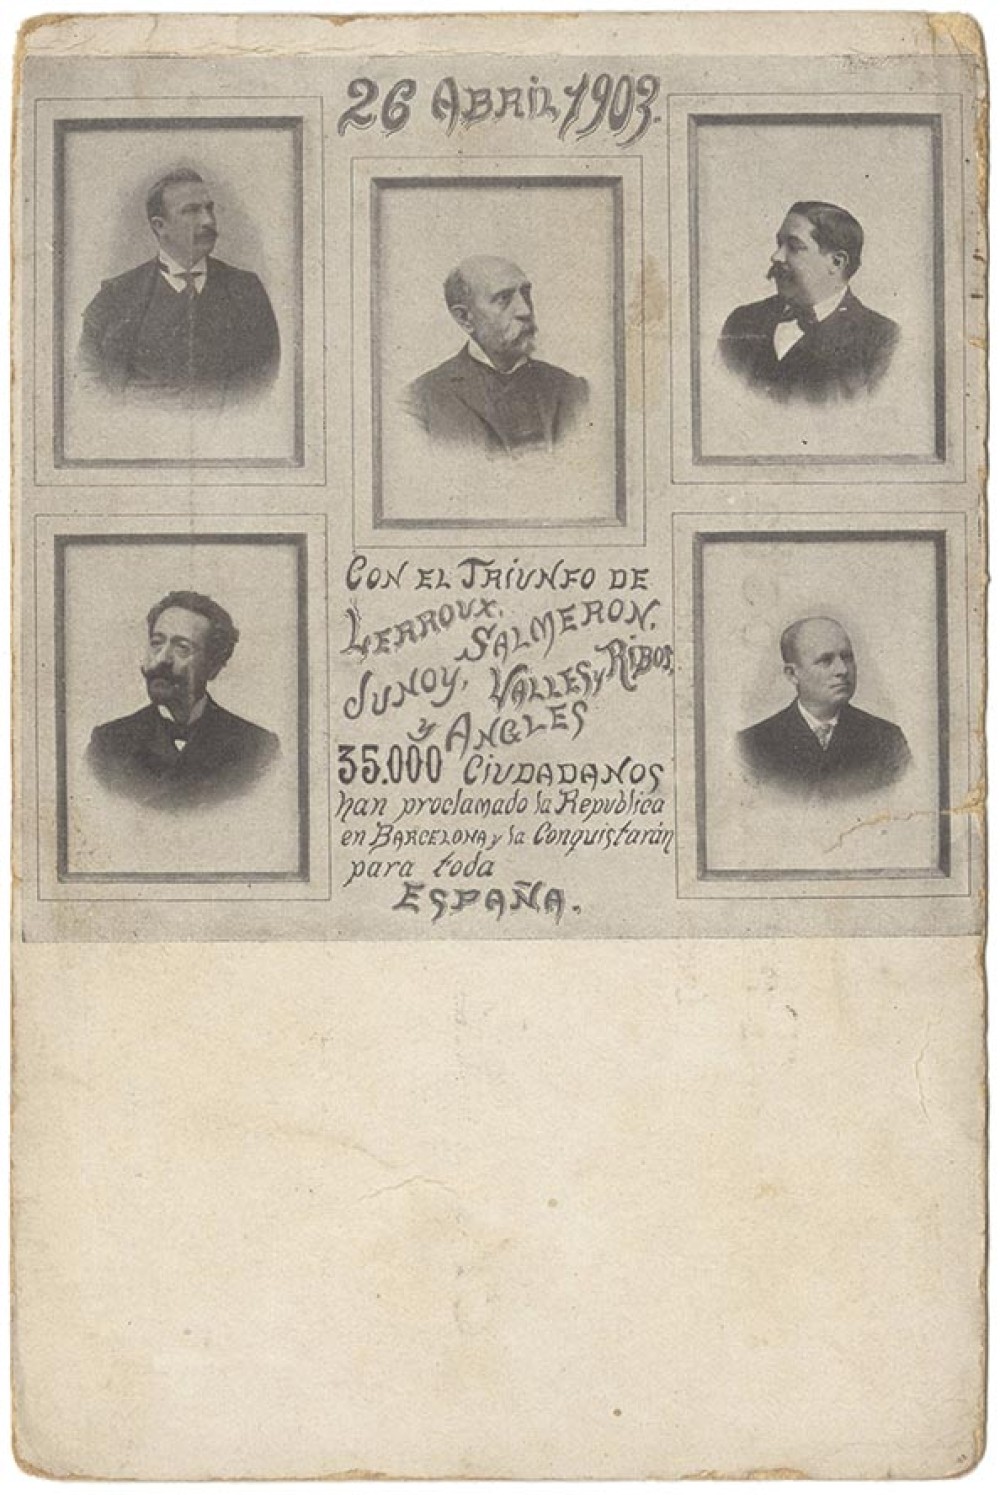 26 ABRIL 1903.
CON EL TRIUNFO DE
LERROUX, SALMERON,
JUNOY, VALLES y RIBOT,
y ANGLES
35.000 CIUDADANOS
han proclamado la Republica
en BARCELONA y la Conquistarán
para toda
ESPAÑA.